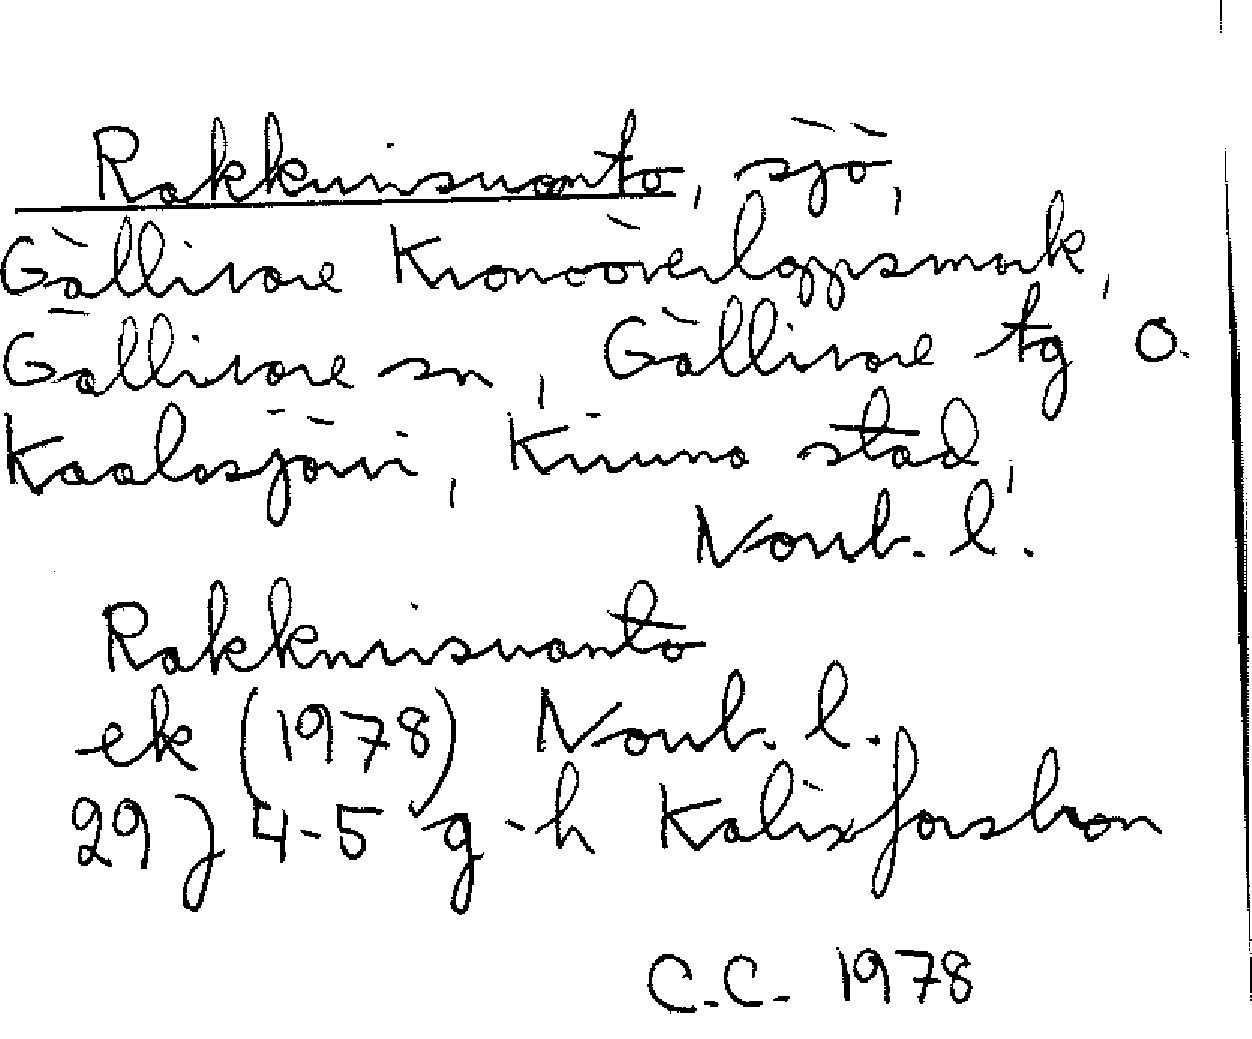 Rakkurisuanto, sjö,
Gällivare Kronoöverloppsmark,
Gällivare sn, Gällivare tg o.
Kaalasjärvi, Kiruna stad,
Norrb. l.
Rakkurisuanto
ek (1978) Norrb. l.
29 J 4-5 g-h Kalixforsbron
C.C. 1978